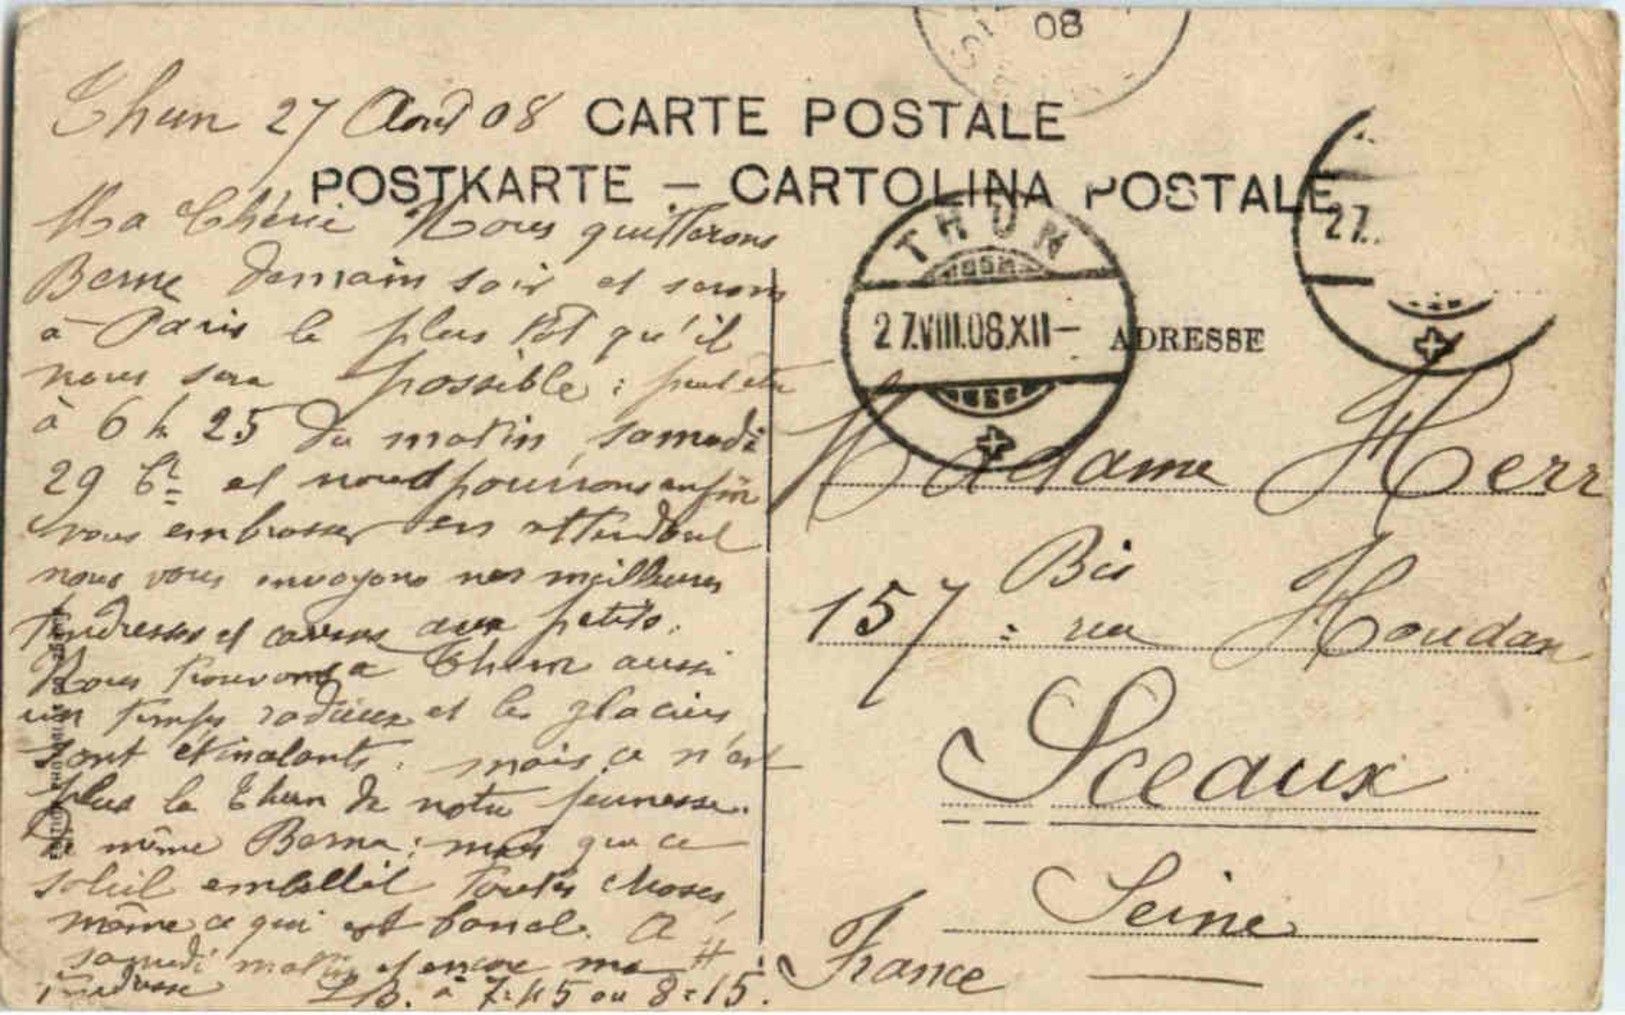 Thun 27 Août 08
CARTE POSTALE
POSTKARTE — CARTOLINA POSTALE
Ma Chérie Nous quitterons
Berne demain soir et serons
à Paris le plus tôt qu'il
nous sera possible : peut être
à 6 h 25 du matin samedi
29 ct et nous pourrons enfin
vous embrasser en attendant
nous vous envoyons nos meilleures
tendresses et aux petits.
Nous trouvons a Thun aussi
un temps radieux et les glaciers
sont étincelants. mais ce n'est
plus le Thun de notre jeunesse.
De même Berne ; mais que ce
soleil embellit toutes choses,
même ce qui est banal. A
samedi matin et encore ma
tendresse
à 7:45 ou 8:15.
08
THUN
27.VIII.08.XII-
27.
ADRESSE
Madame Herr
157 Bis rue Houdan
Sceaux
Seine
France